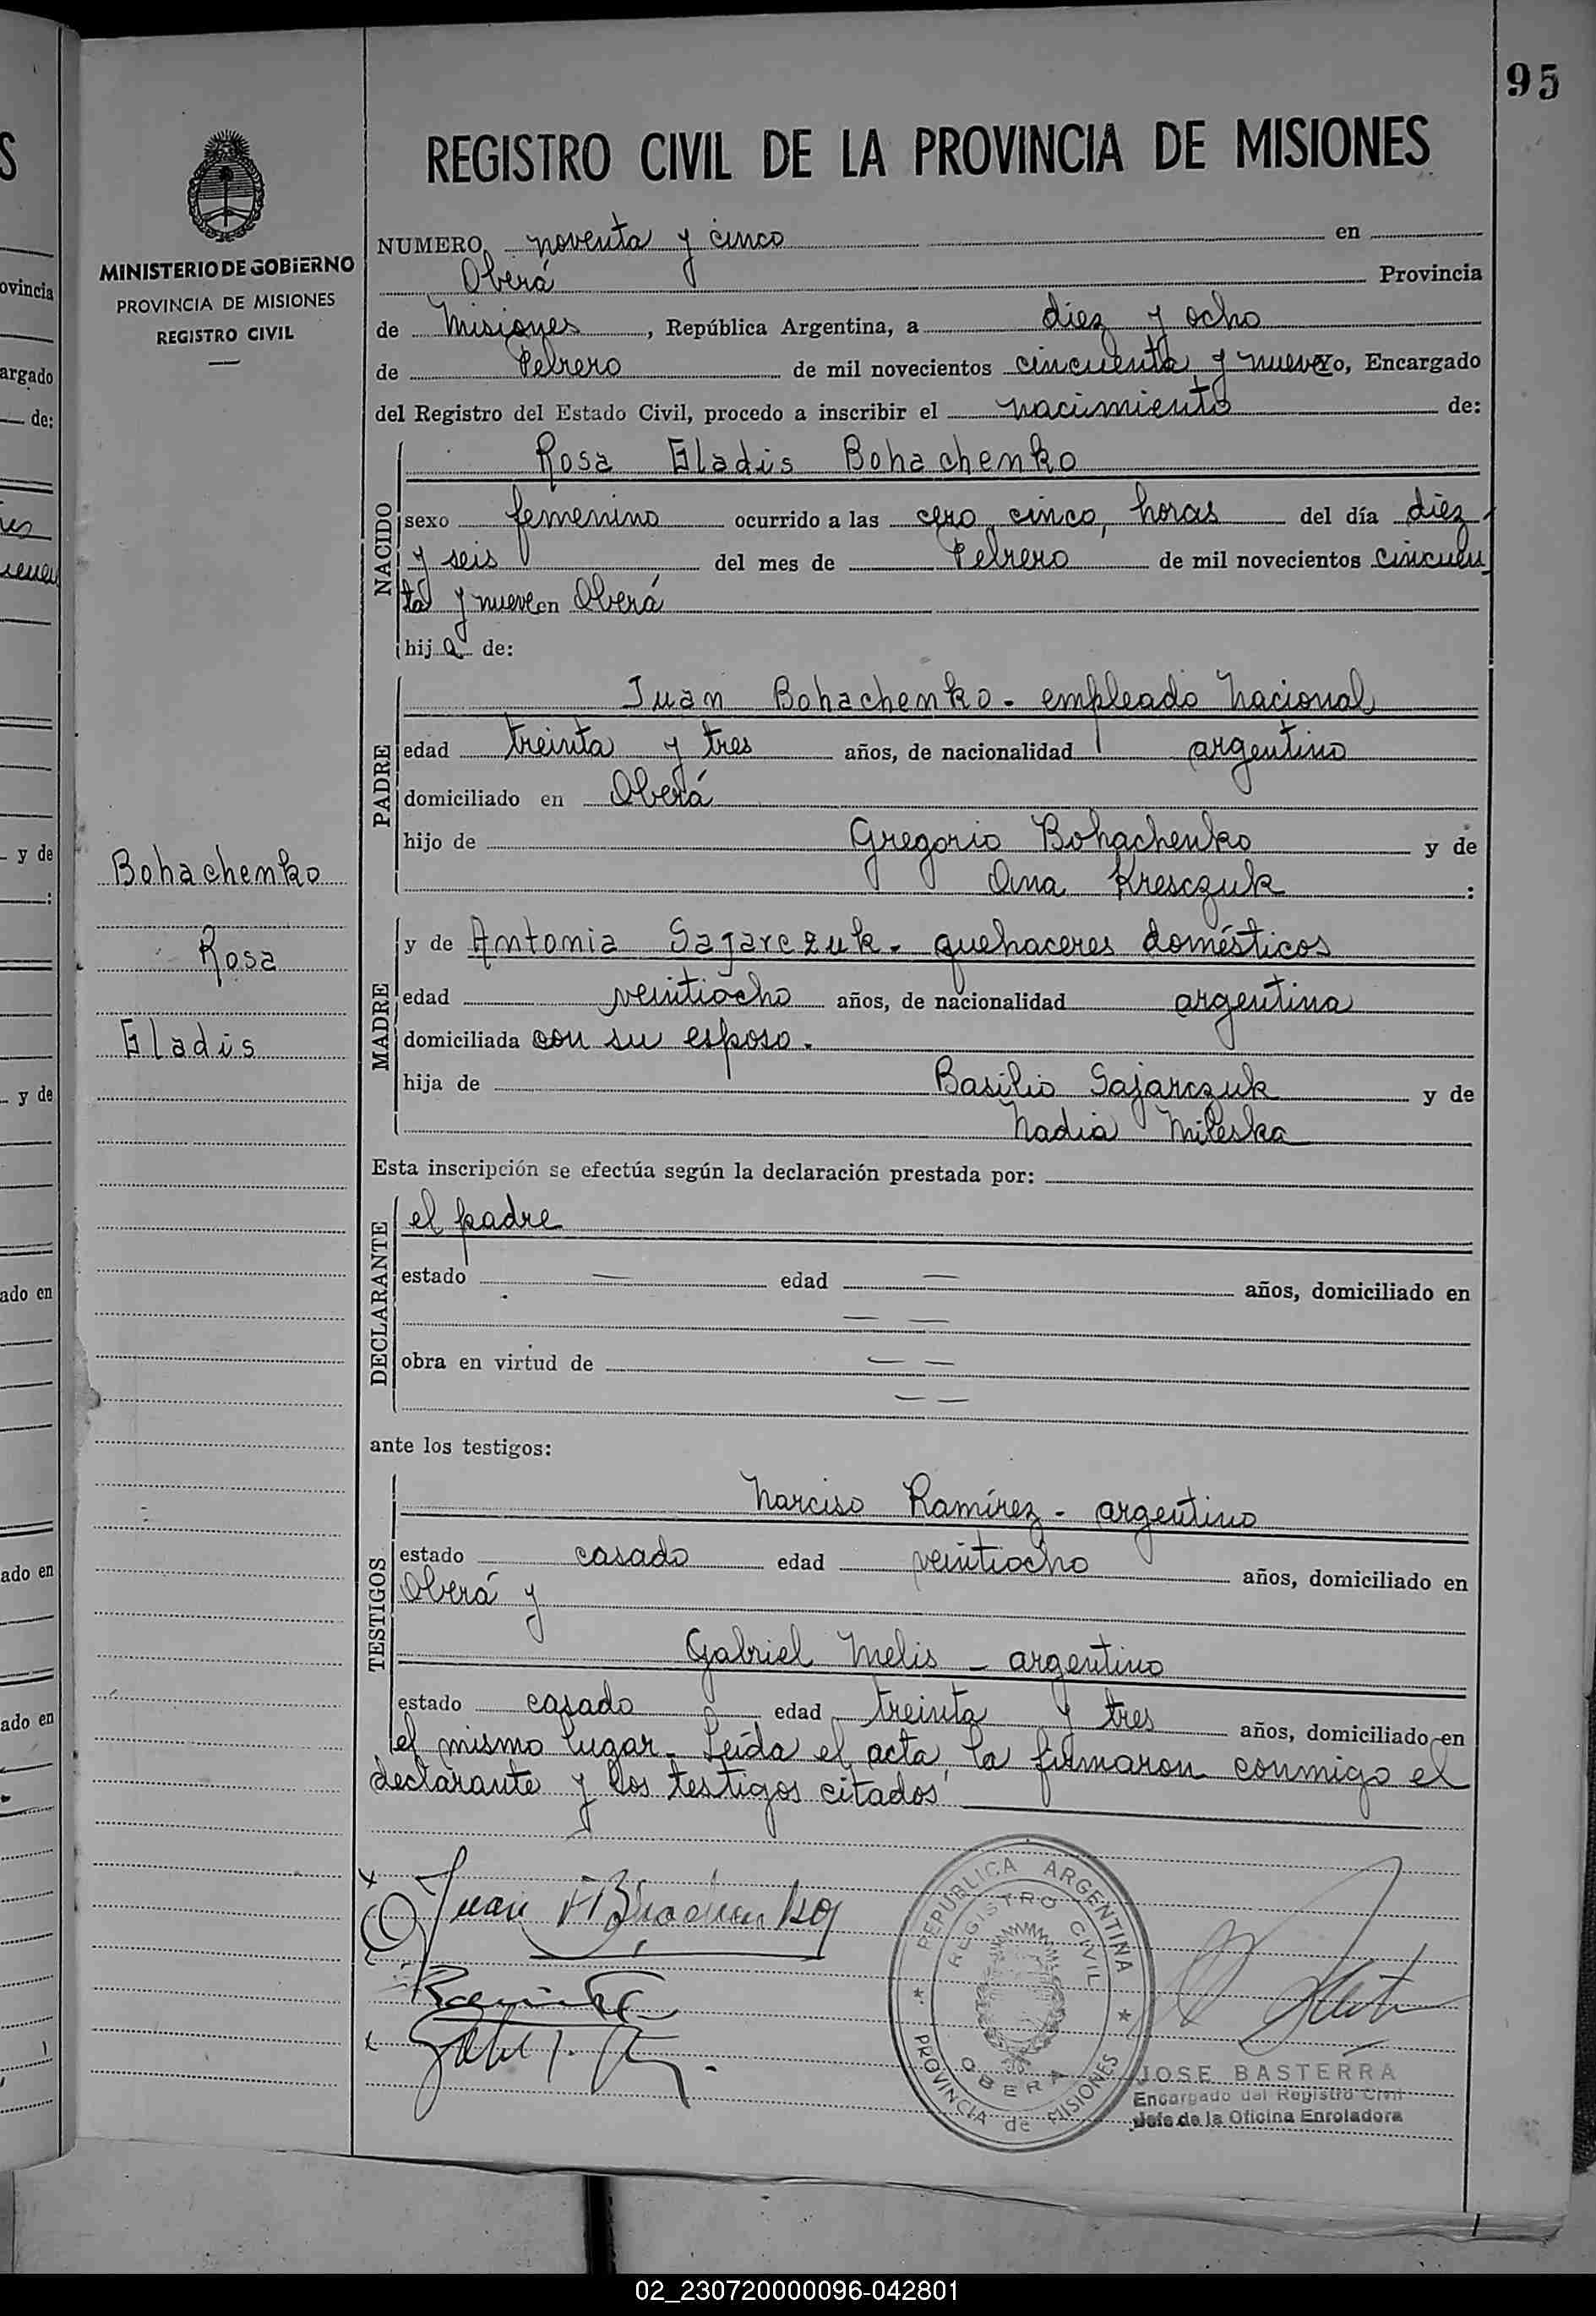 95
REGISTRO CIVIL DE LA PROVINCIA DE MISIONES
MINISTERIO DE GOBIERNO
PROVINCIA DE MISIONES
REGISTRO CIVIL
NUMERO noventa y cinco en
Oberá Provincia
de Misiones, República Argentina, a diez y ocho
de Febrero de mil novecientos cincuenta y nueve yo, Encargado
del Registro del Estado Civil, procedo a inscribir el nacimiento de:
NACIDO
Rosa Gladis Bohachenko
sexo femenino ocurrido a las cero cinco, horas del día diez
y seis del mes de Febrero de mil novecientos cincuen
ta y nueve en Oberá
hija de:
PADRE
Juan Bohachenko - empleado Nacional
edad treinta y tres años, de nacionalidad argentino
domiciliado en Oberá
hijo de Gregorio Bohachenko y de
Ana Kresczuk :
Bohachenko
Rosa
Gladis
MADRE
y de Antonia Sajarczuk - quehaceres domésticos
edad veintiocho años, de nacionalidad argentina
domiciliada con su esposo.
hija de Basilio Sajarczuk y de
Nadia Mileska
Esta inscripción se efectúa según la declaración prestada por:
DECLARANTE
el padre
estado — edad — años, domiciliado en
— —
obra en virtud de — —
— —
ante los testigos:
TESTIGOS
Narciso Ramírez - argentino
estado casado edad veintiocho años, domiciliado en
Oberá y
Gabriel Melis - argentino
estado casado edad treinta y tres años, domiciliado en
el mismo lugar. Leída el acta, la firmaron conmigo el
declarante y los testigos citados
Juan Bohachenko
REPUBLICA ARGENTINA
REGISTRO CIVIL
OBERA
PROVINCIA de MISIONES
JOSE BASTERRA
Encargado del Registro Civil
Jefe de la Oficina Enroladora
02_230720000096-042801